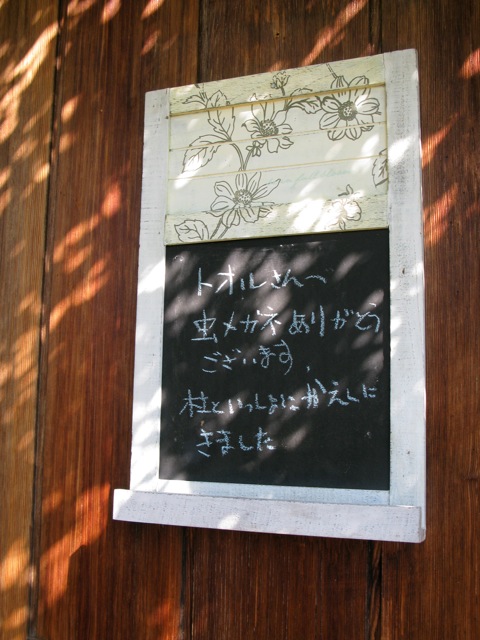 トオルさんへ
虫メガネありがとう
ございます
桂といっしょにかえしに
きました